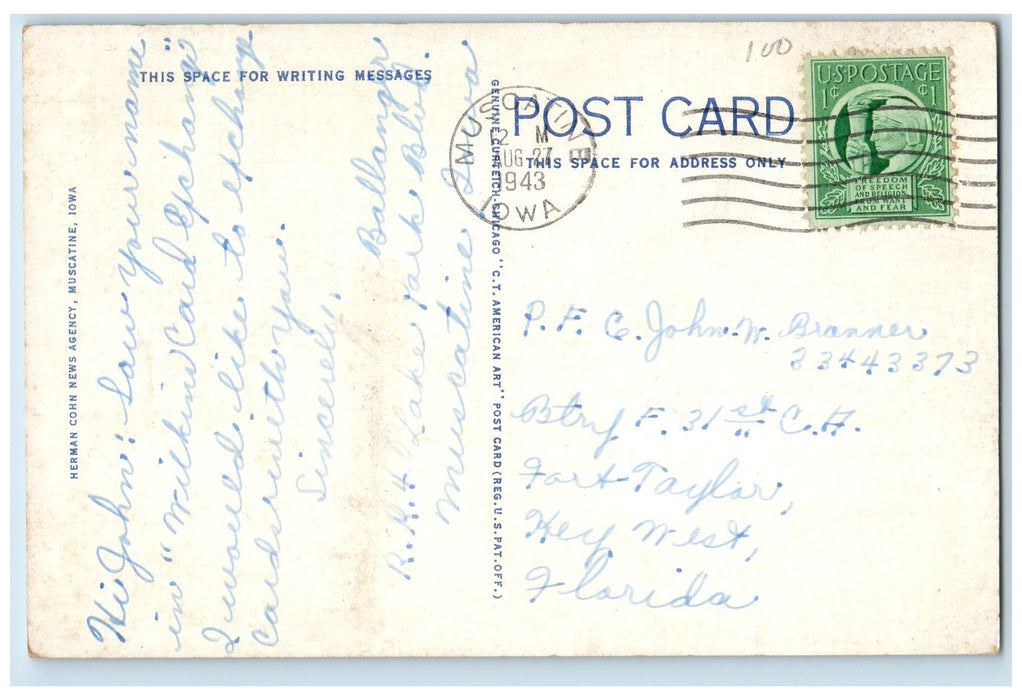 100
THIS SPACE FOR WRITING MESSAGES
POST CARD
THIS SPACE FOR ADDRESS ONLY
U.S. POSTAGE
1¢ ¢1
FREEDOM
OF SPEECH
AND RELIGION
FROM WANT
AND FEAR
MUSCATINE
12 M
AUG 27
1943
IOWA
HERMAN COHN NEWS AGENCY, MUSCATINE, IOWA
Hi John: Saw your name
in "Wilkins Card Exchange"
I would like to exchange
cards with you.
Sincerely,
Ballanger
R.R.4 Lake Park Blvd.
Muscatine Iowa
GENUINE CURTEICH-CHICAGO "C.T. AMERICAN ART" POST CARD (REG. U.S. PAT. OFF.)
P. F. C. John. W. Branner
33443373
Btry F. 31st C.A.
Fort Taylor,
Key West,
Florida